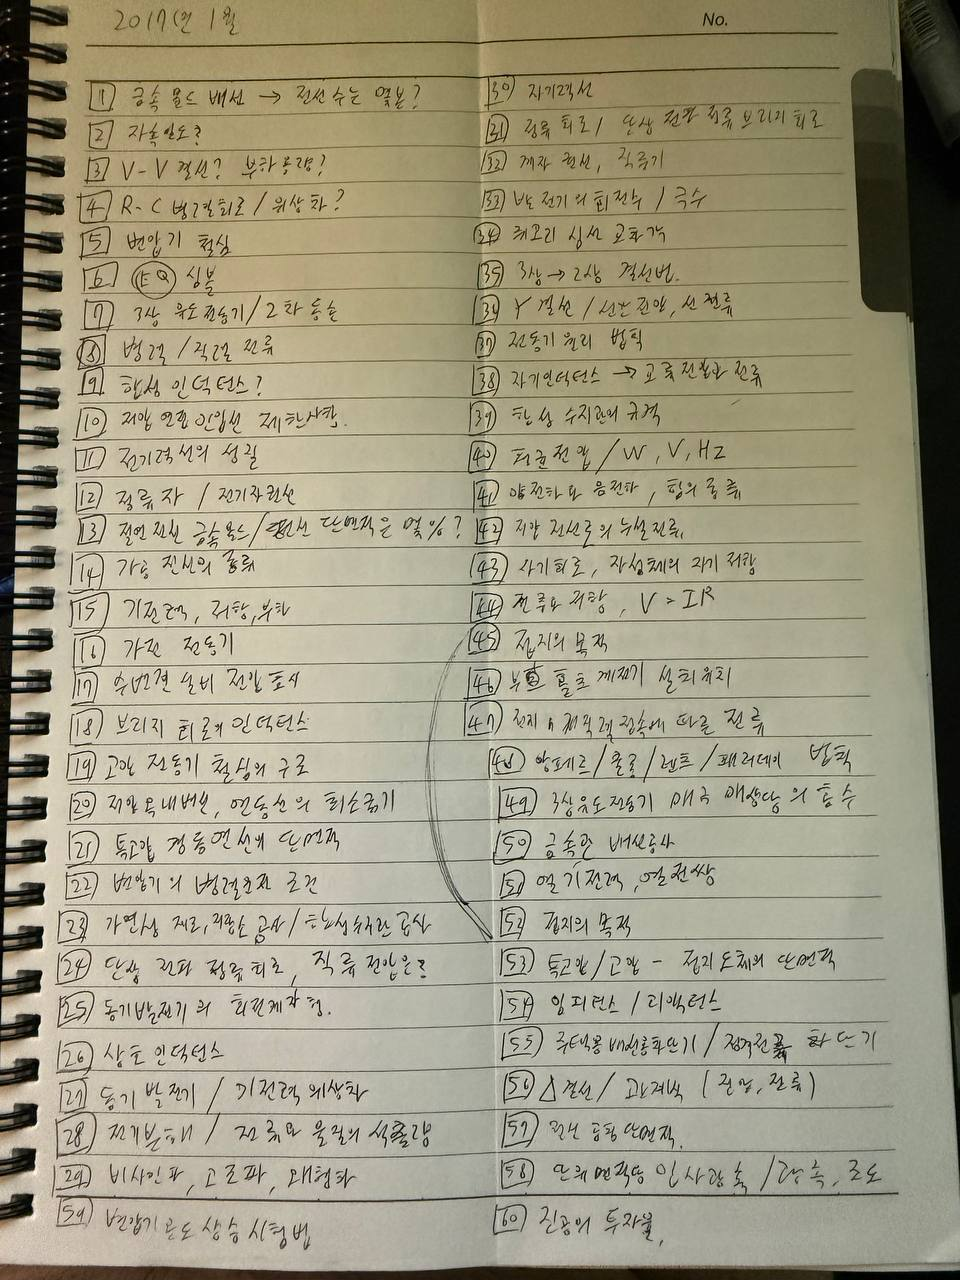 2017년 1월
No.
1 금속 몰드 배선 → 전선수는 몇본?
2 자속밀도?
3 V-V 결선? 부하용량?
4 R-C 병렬회로 / 위상차?
5 변압기 철심
6 EQ 심볼
7 3상 유도전동기 / 2차 동손
8 병렬 / 직렬 전류
9 합성 인덕턴스?
10 저압 연접 인입선 제한사항.
11 전기력선의 성질
12 정류자 / 전기자권선
13 절연전선 금속몰드 / 전선 단면적은 몇%?
14 가공 전선의 종류
15 기전력, 저항, 부하
16 가전 전동기
17 수변전 설비 전압 표시
18 브리지 회로의 인덕턴스
19 고압 전동기 철심의 구조
20 저압옥내배선, 연동선의 최소굵기
21 특고압 경동연선의 단면적
22 변압기의 병렬운전 조건
23 가연성 재료, 저장소 공사 / 합성수지관 공사
24 단상 전파 정류회로, 직류 전압은?
25 동기발전기의 회전계자형.
26 상호 인덕턴스
27 동기 발전기 / 기전력 위상차
28 전기분해 / 전류와 물질의 석출량
29 비사인파, 고조파, 왜형파
59 변압기 온도 상승 시험법
30 자기력선
31 정류 회로 / 단상 전파 정류 브리지 회로
32 계자 권선, 직류기
33 발전기의 회전수 / 극수
34 쥐꼬리 심선 교차각
35 3상→2상 결선법.
36 Y 결선 / 선간전압, 선전류
37 전동기 원리 법칙
38 자기인덕턴스 → 교류전압과 전류
39 합성 수지관의 규격
40 평균전압 / W, V, Hz
41 양전하와 음전하, 힘의 종류
42 저압 전선로의 누설전류.
43 자기회로, 자성체의 자기 저항
44 전류와 저항, V=IR
45 접지의 목적
46 부흐홀츠 계전기 설치위치
47 전지 n개 직렬접속에 따른 전류
48 앙페르 / 쿨롱 / 렌츠 / 패러데이 법칙
49 3상유도전동기 매극 매상당의 홈수
50 금속관 배선공사
51 열기전력, 열전쌍
52 접지의 목적
53 특고압 / 고압 - 접지도체의 단면적
54 임피던스 / 리액턴스
55 주택용 배선용차단기 / 정격전류 차단기
56 △결선 / 관계식 (전압, 전류)
57 전선 공칭단면적.
58 단위면적당 입사광속 / 광속, 조도
60 진공의 투자율,